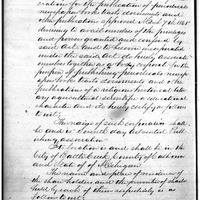 oration for the publication of periodicals
newspapers books tracts documents and
other publications approved March 7th 18
desiring to avail ourselves of the privileges
and powers granted and conferred by
said Act and to become incorporated
under the said Act do hereby associate
ourselves together as a body corporate for the
purpose of publishing periodicals news
papers books tracts documents and other
publications of a religious historical lite
rary agricultural scientific educational
character and do hereby certify as follows
to wit:
The name of such corporation shall
be and is Seventh Day Adventist Publ
ishing association
Its location is and shall be in the
City of Battle Creek County of Calhoun
and State of Michigan
The names and place of residence of
the share holders and the number of shares
held by each of them respectively is as
follows to wit: